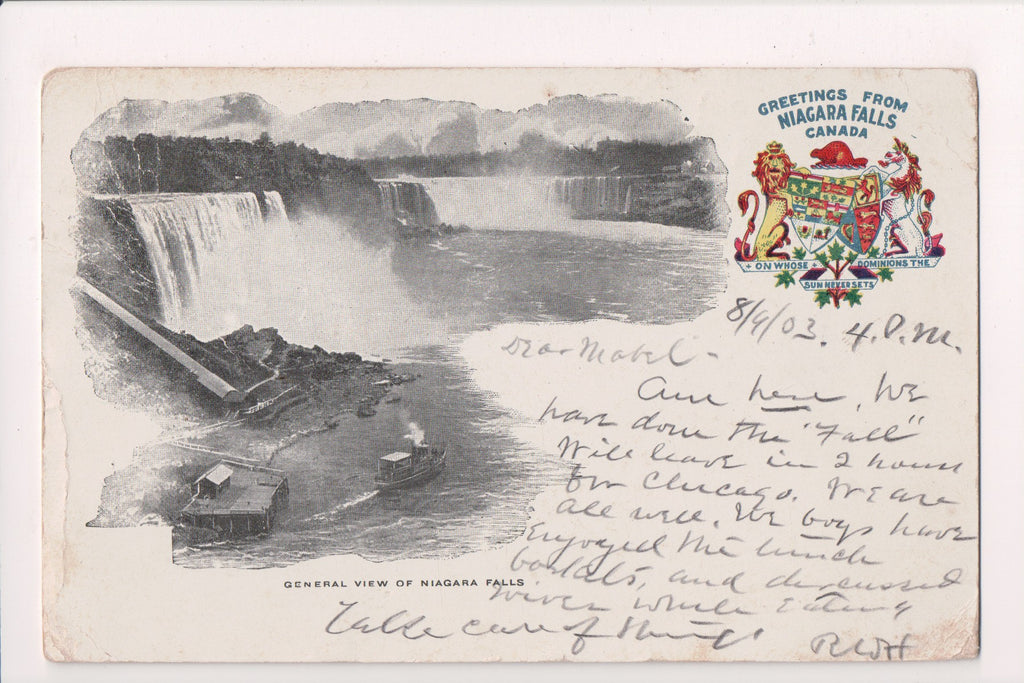 GREETINGS FROM
NIAGARA FALLS
CANADA
+ ON WHOSE + DOMINIONS THE
SUN NEVER SETS
8/9/03. 4. P.M.
Dear Mabel -
Am here, We
have done the "Fall"
Will leave in 2 hours
for Chicago. We are
all well. We boys have
Enjoyed the lunch
baskets, and discussed
wives while eating
Take care of things
RWH
GENERAL VIEW OF NIAGARA FALLS